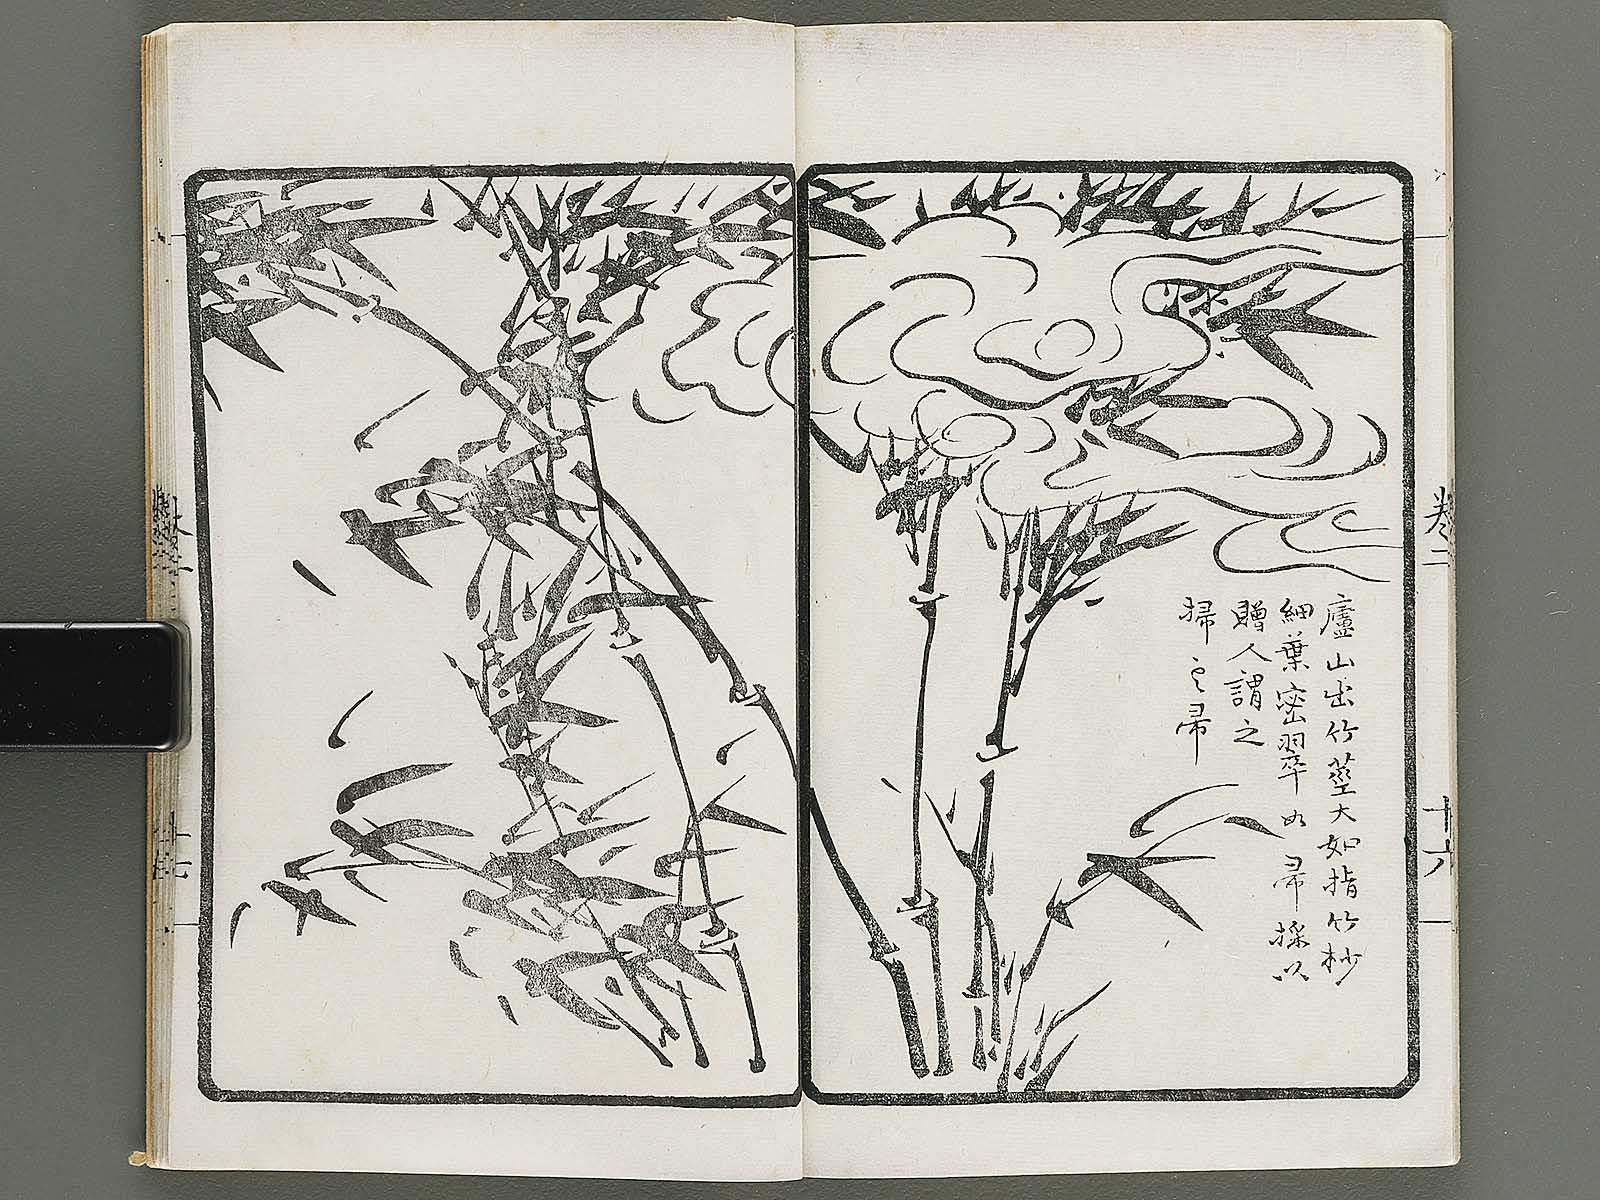 卷二
十六
廬山出竹莖大如指竹杪
細葉密翠如帚採以
贈人謂之
掃云帚